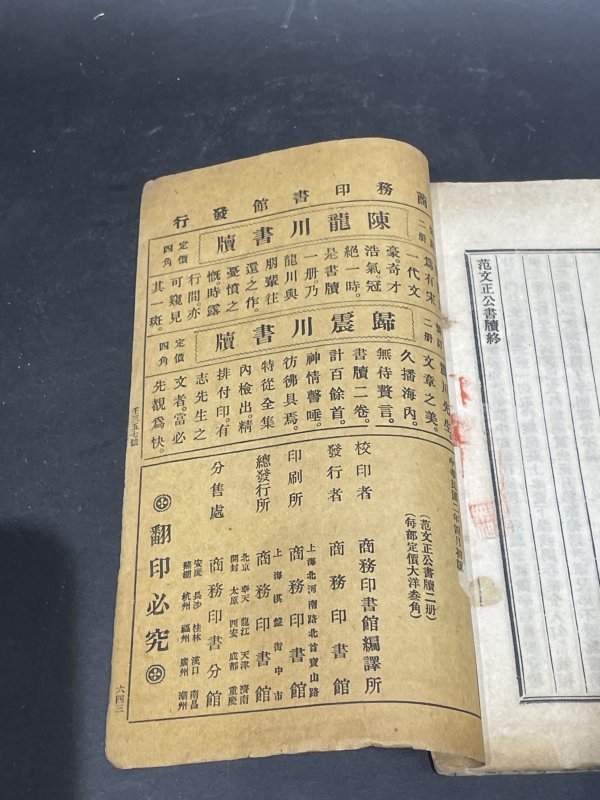 范文正公書牘終
商務印書館發行
陳龍川書牘
一册
定價
四角
爲有宋
一代文
豪。奇才
浩氣。冠
絕一時。
是書牘
一册。乃
龍川與
朋輩往
還之作。
憂憤之
慨。時露
行間。亦
可窺見
其一斑。
歸震川書牘
二册
定價
四角
震川先生
文章之美。
久播海內。
無待贅言。
書牘二卷。
計百餘首。
神情聲唾。
彷彿具焉。
特從全集
內檢出。精
排付印。有
志先生之
文者。當必
先覩爲快。
壬三五七號
中華民國二年四月初版
(范文正公書牘二册)
(每部定價大洋叁角)
校印者 商務印書館編譯所
發行者 商務印書館
上海北河南路北首寶山路
印刷所 商務印書館
上海棋盤街中市
總發行所 商務印書館
北京 奉天 龍江 天津 濟南
開封 太原 西安 成都 重慶
分售處 商務印書分館
安慶 長沙 桂林 漢口 南昌
蕪湖 杭州 福州 廣州 潮州
翻印必究
六四三